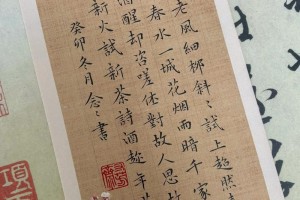 老風細柳斜々試上超然
春水一城花烟雨暗千家
酒醒却咨嗟休對故人思故
新火試新茶詩酒趁年
癸卯冬月念々書
項